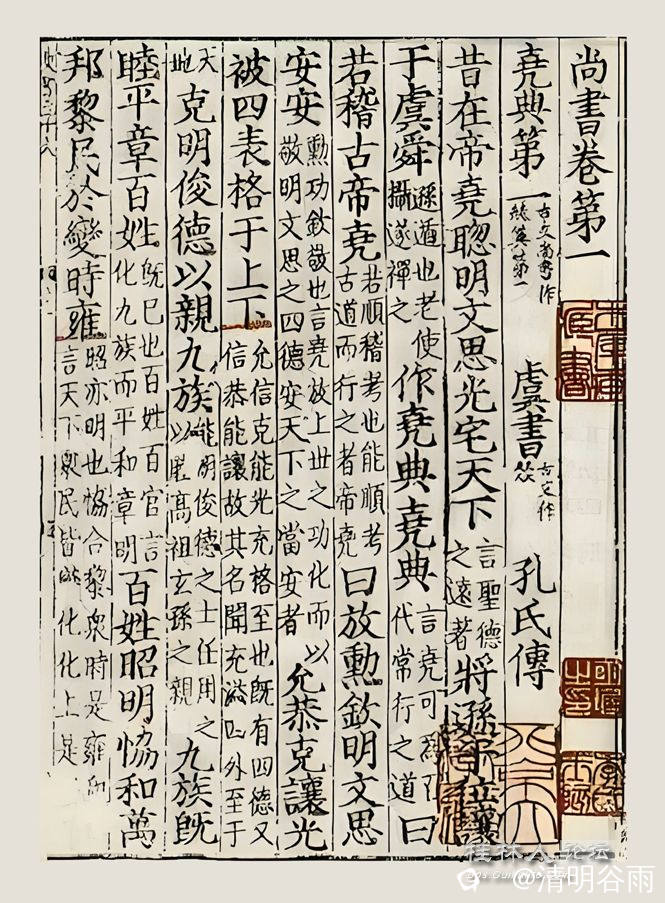 尚書卷第一
堯典第一 古文尚書作 第一 虞書 古文作 孔氏傳
昔在帝堯聦明文思光宅天下 言聖德之遠著 將遜于位讓
于虞舜 遜遁也老使攝遂禪之 作堯典堯典 言堯可爲百代常行之道 曰
若稽古帝堯 若順稽考也能順考古道而行之者帝堯 曰放勳欽明文思
安安 勳功欽敬也言堯放上世之功化而以敬明文思之四德安天下之當安者 允恭克讓光
被四表格于上下 允信克能光充格至也旣有四德又信恭能讓故其名聞充溢四外至于
天地 克明俊德以親九族 能明俊德之士任用之以睦高祖玄孫之親 九族旣
睦平章百姓 旣已也百姓百官言化九族而平和章明 百姓昭明協和萬
邦黎民於變時雍 昭亦明也協合黎衆時是雍和言天下衆民皆變化化上是
桂林人论坛
@清明谷雨